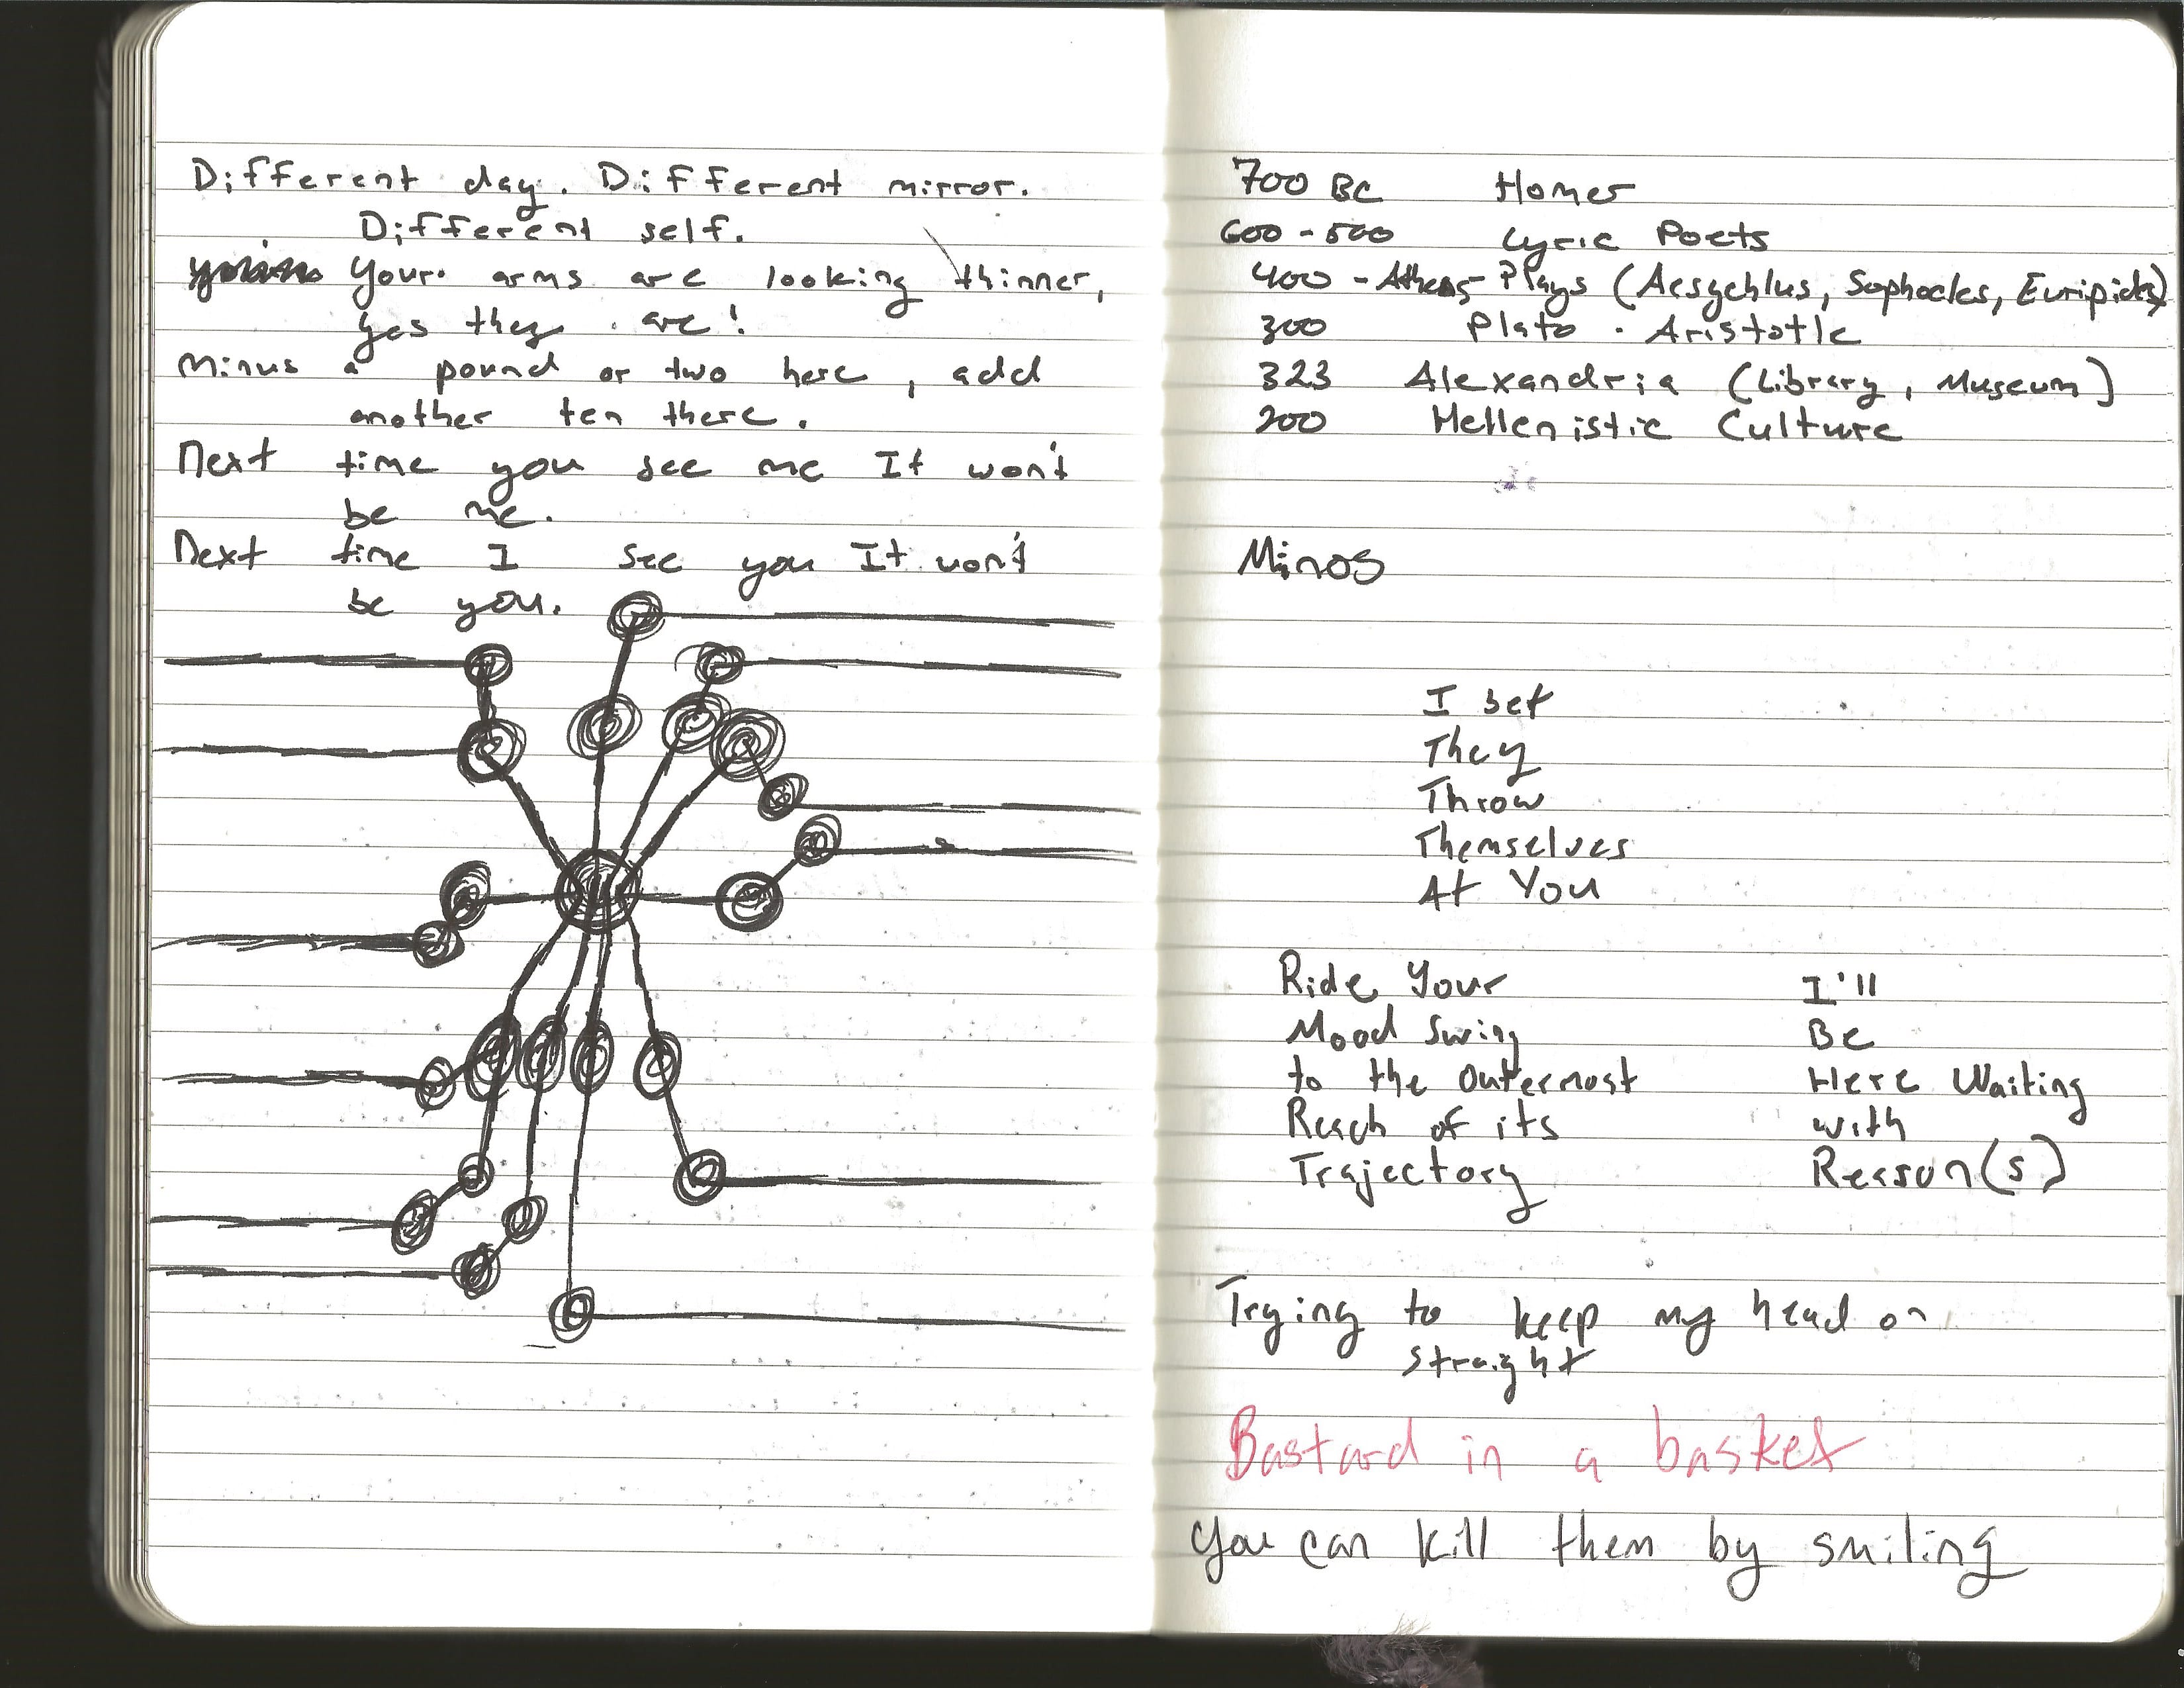 Different day. Different mirror.
Different self.
Your arms are looking thinner,
yes they are!
Minus a pound or two here, add
another ten there.
Next time you see me It won't
be me.
Next time I see you It won't
be you.
700 BC Homer
600-500 Lyric Poets
400 - Athens - Plays (Aesychlus, Sophocles, Euripides)
300 Plato - Aristotle
323 Alexandria (Library, Museum)
200 Hellenistic Culture
Minos
I bet
They
Throw
Themselves
At You
Ride Your
Mood Swing
to the Outermost
Reach of its
Trajectory
I'll
Be
Here Waiting
with
Reason(s)
Trying to keep my head on
straight
Bastard in a basket
You can kill them by smiling